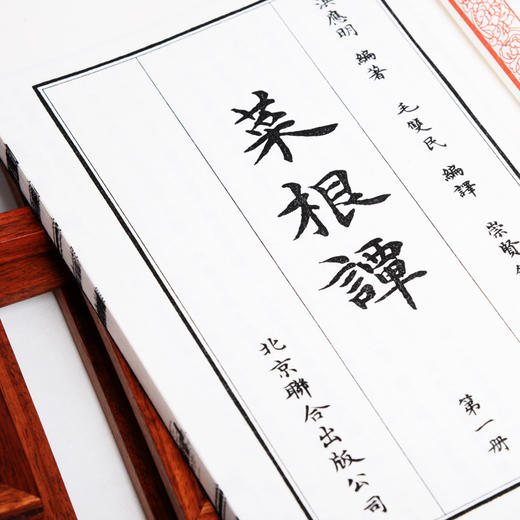 洪應明 編著
毛雙民 編譯 崇賢
菜根譚
第一册
北京聯合出版公司